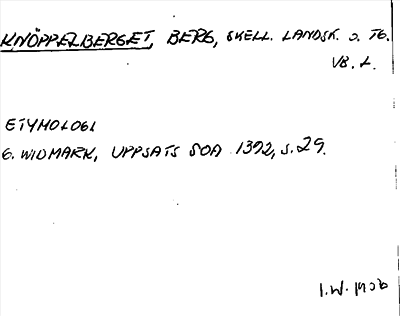 KNÖPPELBERGET, BERG, SKELL. LANDSK. O. TG.
VB. L.
ETYMOLOGI
G. WIDMARK, UPPSATS SOA 1392, S. 29.
I.W.